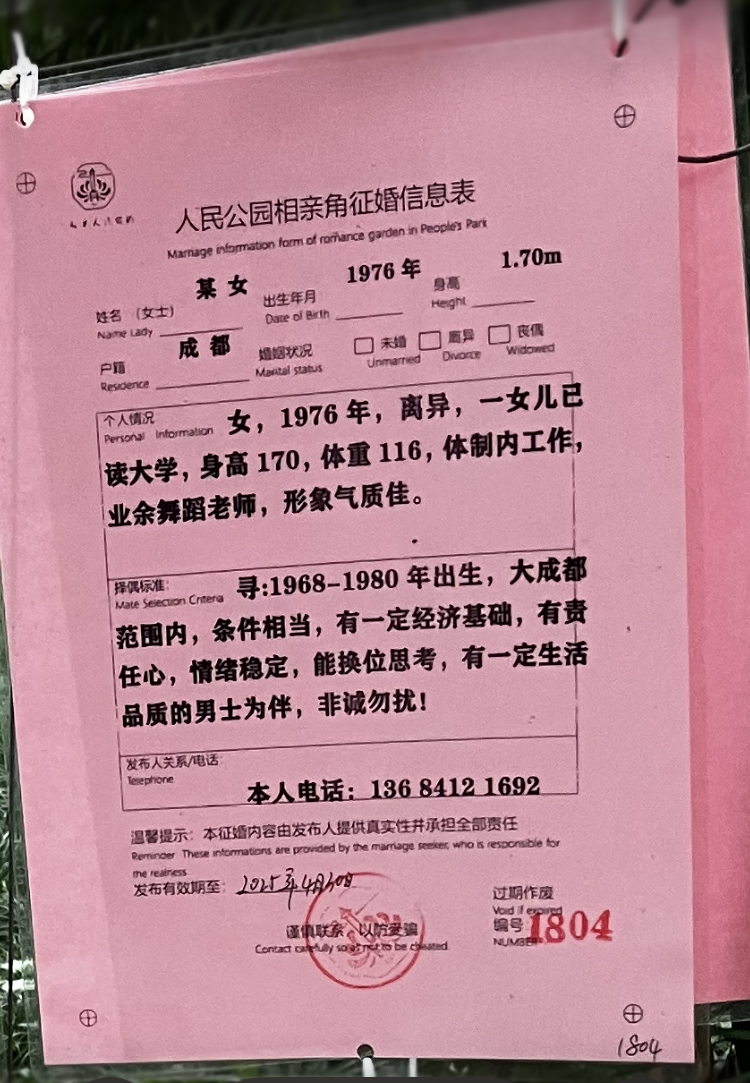 人民公园相亲角征婚信息表
Marriage information form of romance garden in People's Park
姓名（女士） 某 女 出生年月 1976 年 身高 1.70m
Name Lady Date of Birth Height
户籍 成 都 婚姻状况 未婚 离异 丧偶
Residence Marital status Unmarried Divorce Widowed
个人情况
Personal Information 女，1976 年，离异，一女儿已
读大学，身高 170，体重 116，体制内工作，
业余舞蹈老师，形象气质佳。
择偶标准:
Mate Selection Criteria 寻:1968-1980 年出生，大成都
范围内，条件相当，有一定经济基础，有责
任心，情绪稳定，能换位思考，有一定生活
品质的男士为伴，非诚勿扰！
发布人关系/电话:
Telephone
本人电话：136 8412 1692
温馨提示：本征婚内容由发布人提供真实性并承担全部责任
Reminder These informations are provided by the marriage seeker, who is responsible for
the realness
发布有效期至：2025年4月30日
过期作废
Void if expired
谨慎联系，以防受骗
Contact carefully so as not to be cheated
编号 1804
NUMBER
1804